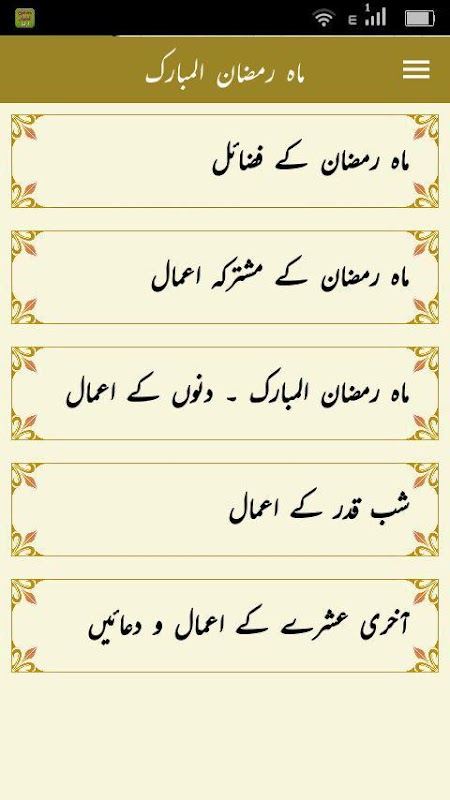 E 1
ماہ رمضان المبارک
ماہ رمضان کے فضائل
ماہ رمضان کے مشترکہ اعمال
ماہ رمضان المبارک ۔ دنوں کے اعمال
شب قدر کے اعمال
آخری عشرے کے اعمال و دعائیں